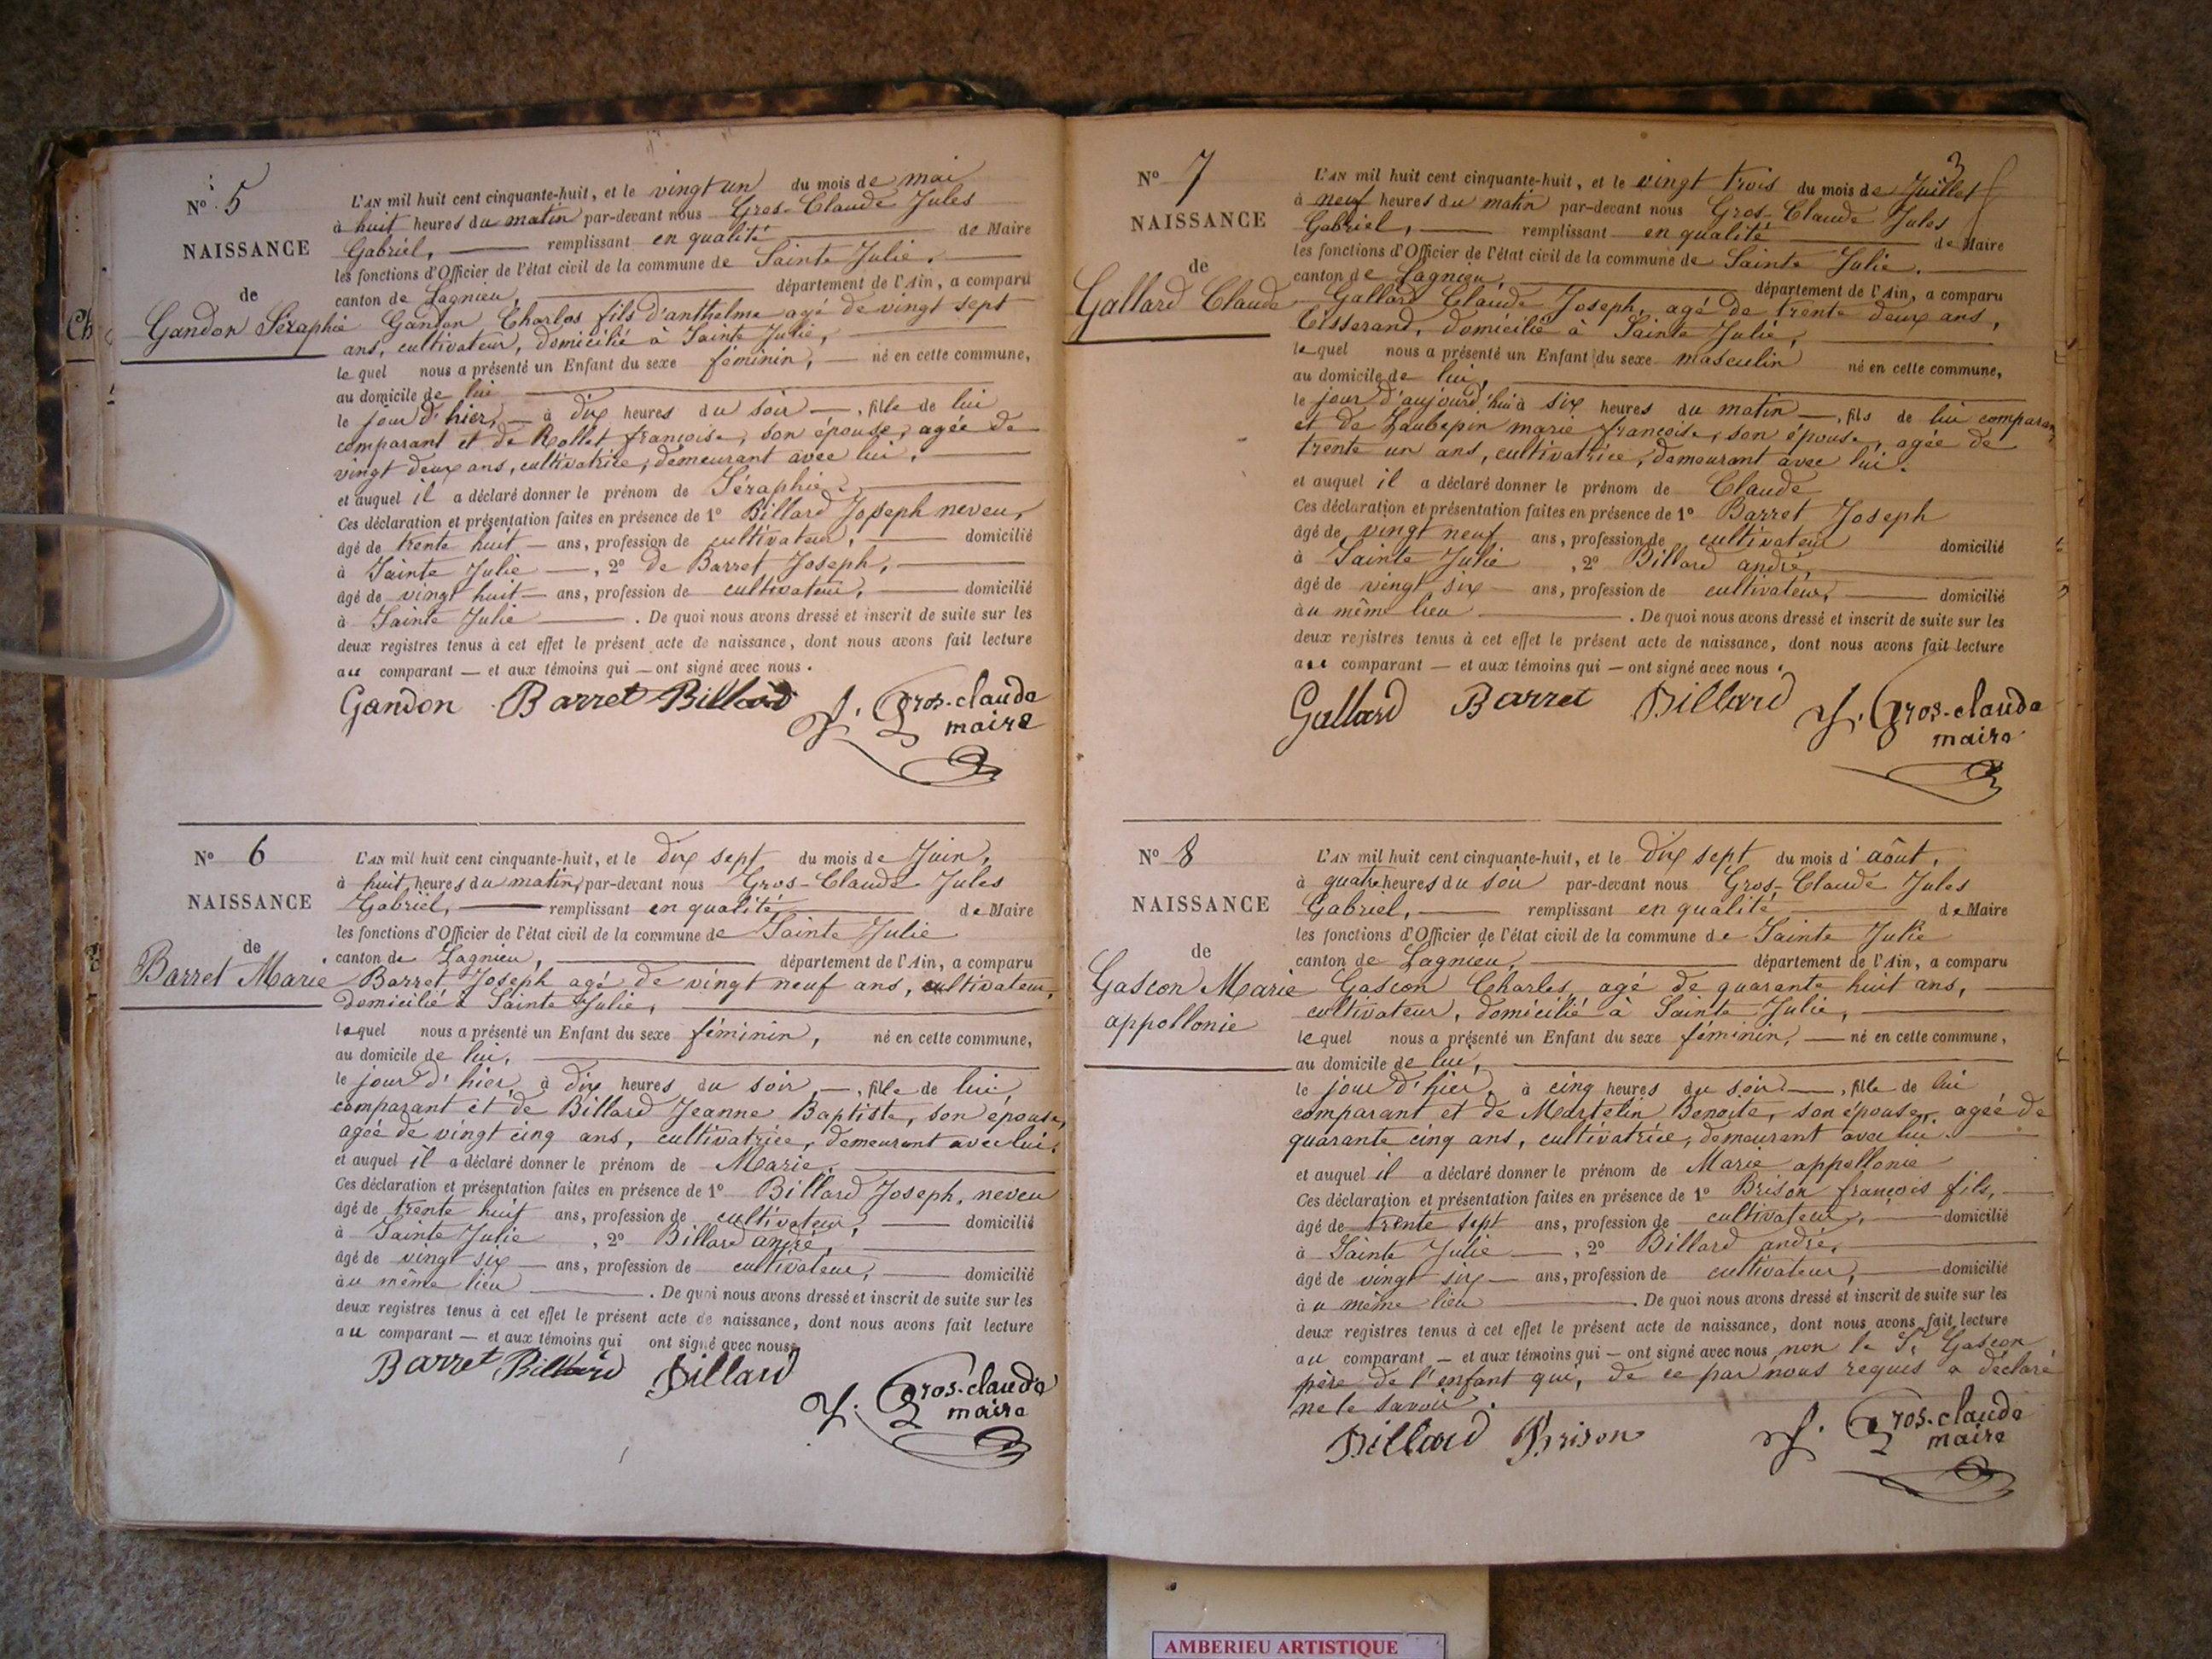 Nº 5
NAISSANCE
de
Gandon Séraphie
L'AN mil huit cent cinquante-huit, et le vingt un du mois de mai
à huit heures du matin par-devant nous Gros-Claude Jules
Gabriel, remplissant en qualité de Maire
les fonctions d'Officier de l'état civil de la commune de Sainte Julie.
canton de Lagnieu, département de l'Ain, a comparu
Gandon Charles fils d'anthelme agé de vingt sept
ans, cultivateur, domicilié à Sainte Julie,
lequel nous a présenté un Enfant du sexe féminin, né en cette commune,
au domicile de lui
le jour d'hier, à dix heures du soir, fille de lui
comparant et de Rollet françoise, son épouse, agée de
vingt deux ans, cultivatrice, demeurant avec lui.
et auquel il a déclaré donner le prénom de Séraphie.
Ces déclaration et présentation faites en présence de 1º Billard Joseph neveu,
âgé de trente huit ans, profession de cultivateur, domicilié
à Sainte Julie, 2º de Barret Joseph,
âgé de vingt huit ans, profession de cultivateur, domicilié
à Sainte Julie. De quoi nous avons dressé et inscrit de suite sur les
deux registres tenus à cet effet le présent acte de naissance, dont nous avons fait lecture
au comparant — et aux témoins qui — ont signé avec nous.
Gandon Barret Billard J. Gros-claude
maire
Nº 6
NAISSANCE
de
Barret Marie
L'AN mil huit cent cinquante-huit, et le dix sept du mois de Juin,
à huit heures du matin, par-devant nous Gros-Claude Jules
Gabriel, remplissant en qualité de Maire
les fonctions d'Officier de l'état civil de la commune de Sainte Julie
canton de Lagnieu, département de l'Ain, a comparu
Barret Joseph agé de vingt neuf ans, cultivateur,
domicilié à Sainte Julie,
lequel nous a présenté un Enfant du sexe féminin, né en cette commune,
au domicile de lui,
le jour d'hier, à dix heures du soir, fille de lui
comparant et de Billard Jeanne Baptiste, son épouse,
agée de vingt cinq ans, cultivatrice, demeurant avec lui.
et auquel il a déclaré donner le prénom de Marie.
Ces déclaration et présentation faites en présence de 1º Billard Joseph, neveu
âgé de trente huit ans, profession de cultivateur, domicilié
à Sainte Julie, 2º Billard andré,
âgé de vingt six ans, profession de cultivateur, domicilié
au même lieu. De quoi nous avons dressé et inscrit de suite sur les
deux registres tenus à cet effet le présent acte de naissance, dont nous avons fait lecture
au comparant — et aux témoins qui ont signé avec nous.
Barret Billard Billard
J. Gros-claude
maire
3
Nº 7
NAISSANCE
de
Gallard Claude
L'AN mil huit cent cinquante-huit, et le vingt trois du mois de Juillet
à neuf heures du matin par-devant nous Gros-Claude Jules
Gabriel, remplissant en qualité de Maire
les fonctions d'Officier de l'état civil de la commune de Sainte Julie.
canton de Lagnieu, département de l'Ain, a comparu
Gallard Claude Joseph, agé de trente deux ans,
tisserand, domicilié à Sainte Julie,
lequel nous a présenté un Enfant du sexe masculin né en cette commune,
au domicile de lui,
le jour d'aujourd'hui à six heures du matin, fils de lui comparant
et de Laubepin marie françoise, son épouse, agée de
trente un ans, cultivatrice, demeurant avec lui.
et auquel il a déclaré donner le prénom de Claude
Ces déclaration et présentation faites en présence de 1º Barret Joseph
âgé de vingt neuf ans, profession de cultivateur domicilié
à Sainte Julie, 2º Billard andré,
âgé de vingt six ans, profession de cultivateur, domicilié
au même lieu. De quoi nous avons dressé et inscrit de suite sur les
deux registres tenus à cet effet le présent acte de naissance, dont nous avons fait lecture
au comparant — et aux témoins qui — ont signé avec nous.
Gallard Barret Billard J. Gros-claude
maire
Nº 8
NAISSANCE
de
Gascon Marie
appollonie
L'AN mil huit cent cinquante-huit, et le dix sept du mois d'août,
à quatre heures du soir par-devant nous Gros-Claude Jules
Gabriel, remplissant en qualité de Maire
les fonctions d'Officier de l'état civil de la commune de Sainte Julie
canton de Lagnieu, département de l'Ain, a comparu
Gascon Charles, agé de quarante huit ans,
cultivateur, domicilié à Sainte Julie,
lequel nous a présenté un Enfant du sexe féminin, né en cette commune,
au domicile de lui,
le jour d'hier, à cinq heures du soir, fille de lui
comparant et de Martelin Benoite, son épouse, agée de
quarante cinq ans, cultivatrice, demeurant avec lui.
et auquel il a déclaré donner le prénom de Marie appollonie
Ces déclaration et présentation faites en présence de 1º Brison françois fils,
âgé de trente sept ans, profession de cultivateur, domicilié
à Sainte Julie, 2º Billard andré,
âgé de vingt six ans, profession de cultivateur, domicilié
au même lieu. De quoi nous avons dressé et inscrit de suite sur les
deux registres tenus à cet effet le présent acte de naissance, dont nous avons fait lecture
au comparant — et aux témoins qui — ont signé avec nous, non le Sr Gascon
père de l'enfant qui, de ce par nous requis a déclaré
ne le savoir.
Billard Brison J. Gros-claude
maire
AMBERIEU ARTISTIQUE